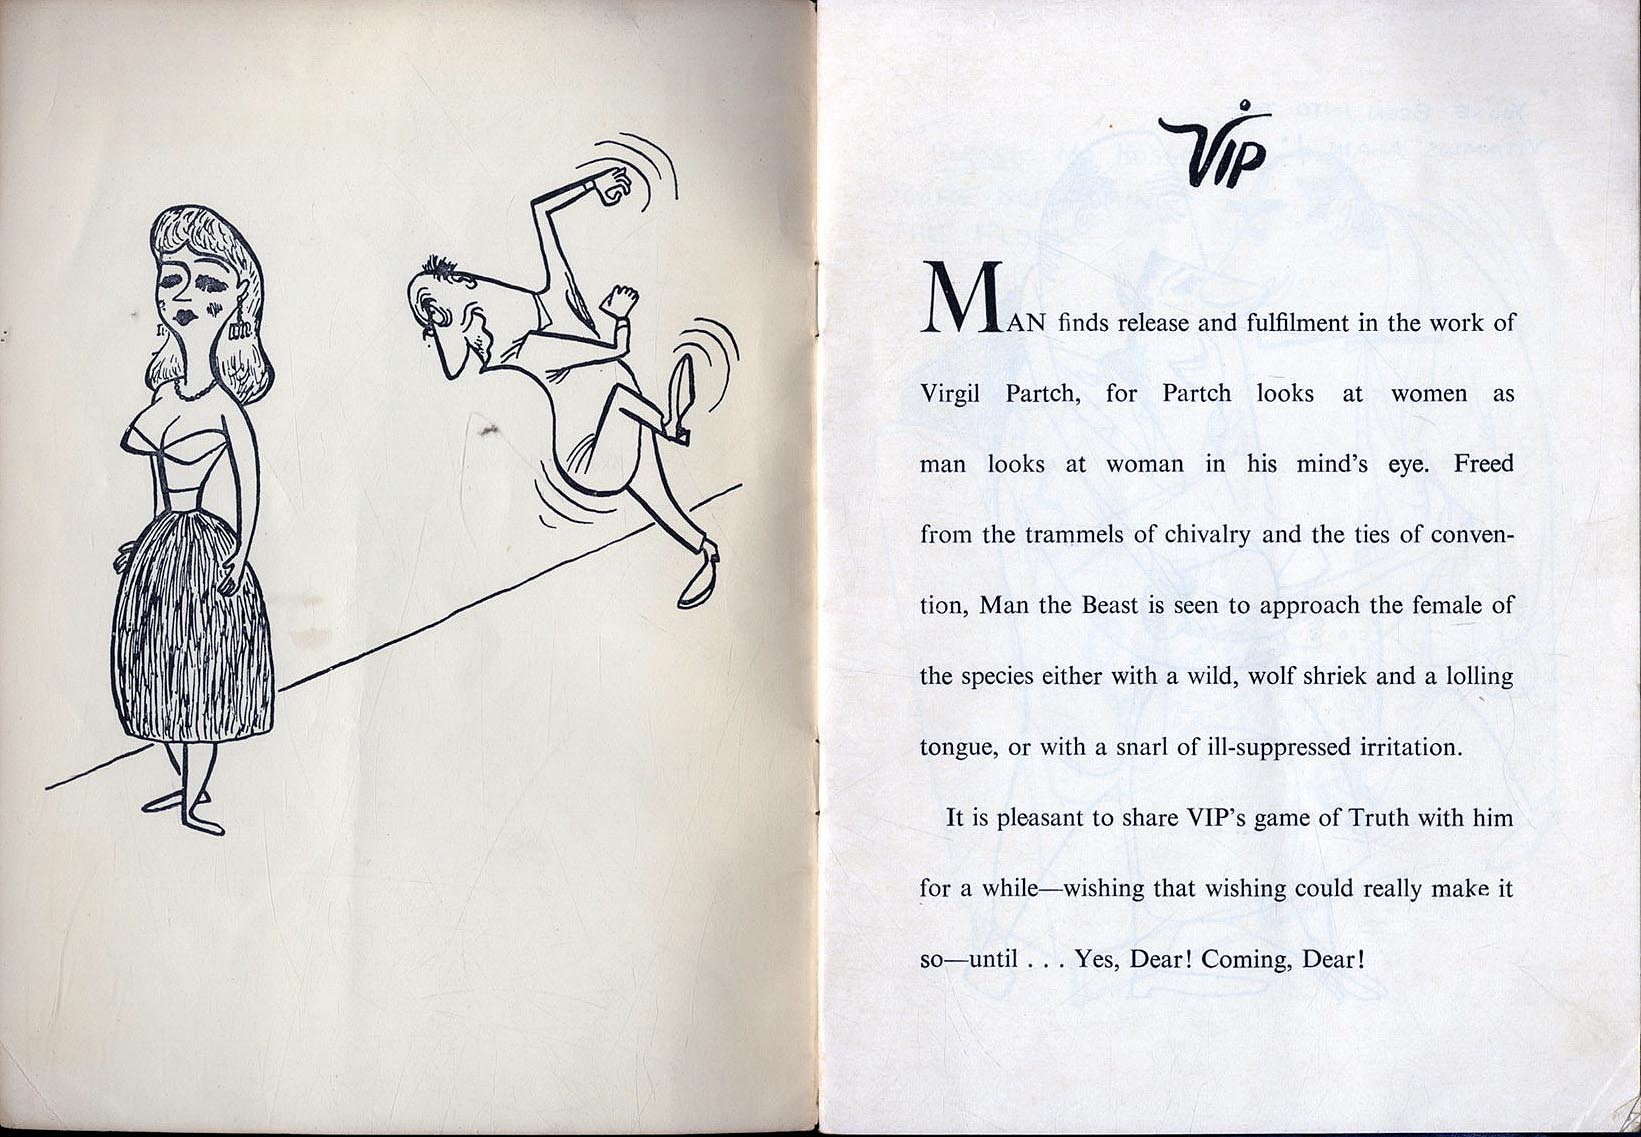 VIP
MAN finds release and fulfilment in the work of
Virgil Partch, for Partch looks at women as
man looks at woman in his mind's eye. Freed
from the trammels of chivalry and the ties of conven-
tion, Man the Beast is seen to approach the female of
the species either with a wild, wolf shriek and a lolling
tongue, or with a snarl of ill-suppressed irritation.
It is pleasant to share VIP's game of Truth with him
for a while—wishing that wishing could really make it
so—until . . . Yes, Dear! Coming, Dear!